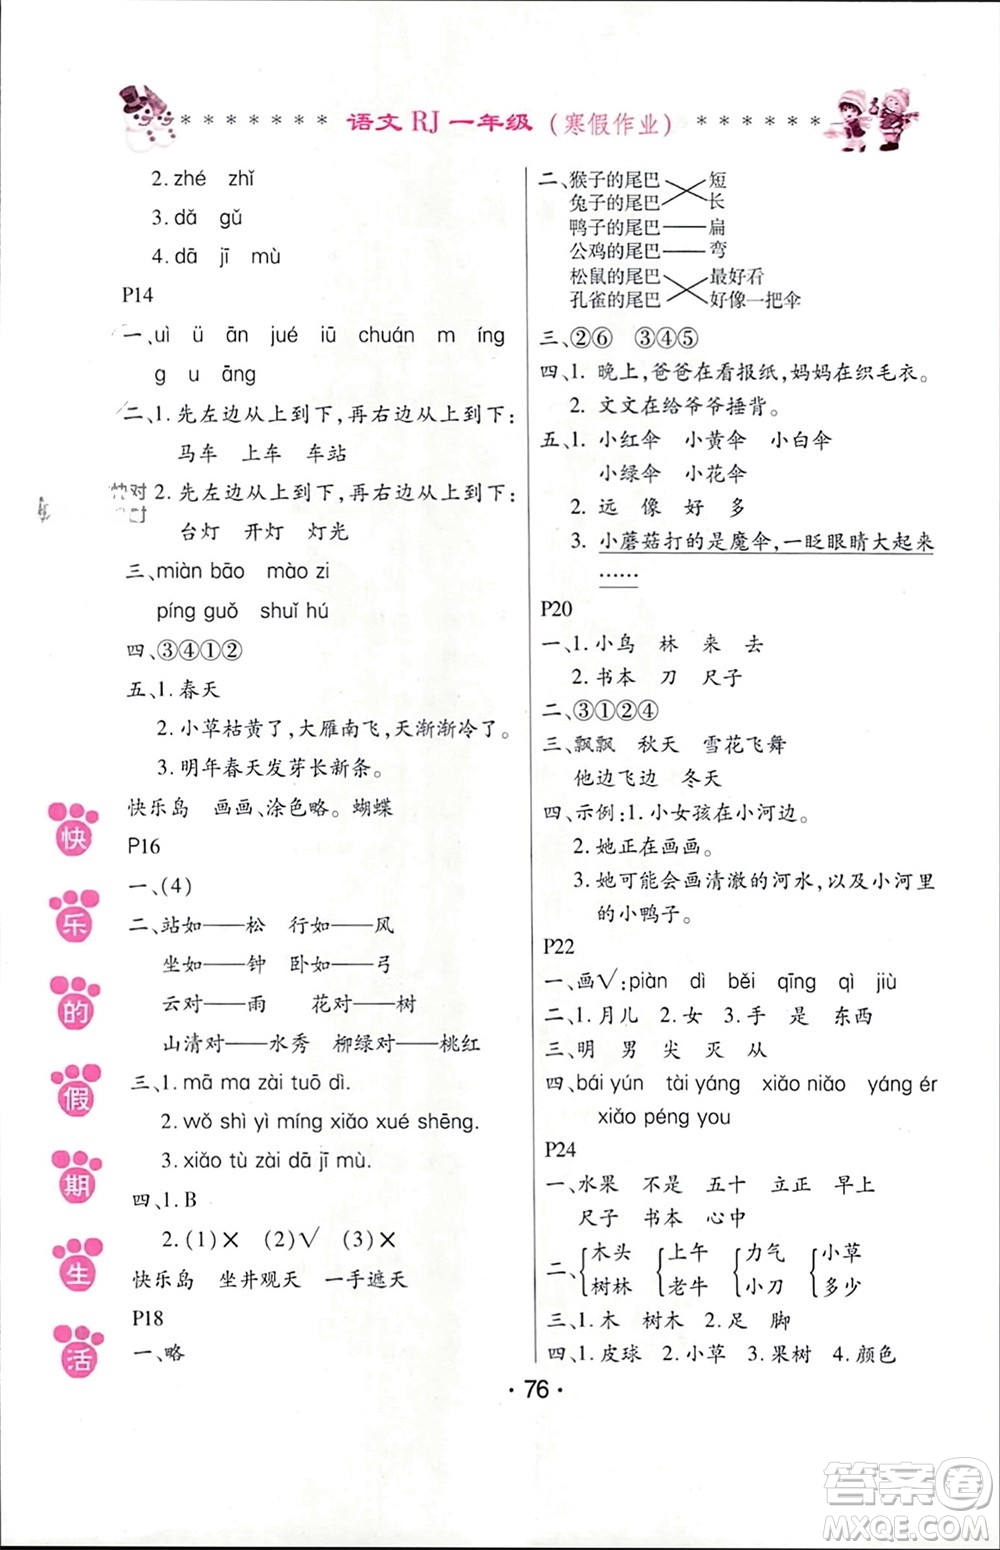 语文 RJ 一年级（寒假作业）
2. zhé zhǐ
3. dǎ gǔ
4. dā jī mù
P14
一、uì ü ān jué iū chuán m íng
g u āng
二、1. 先左边从上到下，再右边从上到下：
马车 上车 车站
2. 先左边从上到下，再右边从上到下：
台灯 开灯 灯光
三、miàn bāo mào zi
píng guǒ shuǐ hú
四、③④①②
五、1. 春天
2. 小草枯黄了，大雁南飞，天渐渐冷了。
3. 明年春天发芽长新条。
快乐岛 画画、涂色略。蝴蝶
P16
一、(4)
二、站如——松 行如——风
坐如——钟 卧如——弓
云对——雨 花对——树
山清对——水秀 柳绿对——桃红
三、1. mā ma zài tuō dì.
2. wǒ shì yì míng xiǎo xué shēng.
3. xiǎo tù zài dā jī mù.
四、1. B
2. (1)× (2)√ (3)×
快乐岛 坐井观天 一手遮天
P18
一、略
二、猴子的尾巴 短
兔子的尾巴 长
鸭子的尾巴——扁
公鸡的尾巴——弯
松鼠的尾巴 最好看
孔雀的尾巴 好像一把伞
三、②⑥ ③④⑤
四、1. 晚上，爸爸在看报纸，妈妈在织毛衣。
2. 文文在给爷爷捶背。
五、1. 小红伞 小黄伞 小白伞
小绿伞 小花伞
2. 远 像 好 多
3. 小蘑菇打的是魔伞，一眨眼睛大起来
……
P20
一、1. 小鸟 林 来 去
2. 书本 刀 尺子
二、③①②④
三、飘飘 秋天 雪花飞舞
他边飞边 冬天
四、示例：1. 小女孩在小河边。
2. 她正在画画。
3. 她可能会画清澈的河水，以及小河里
的小鸭子。
P22
一、画√：piàn dì běi qīng qì jiù
二、1. 月儿 2. 女 3. 手 是 东西
三、明 男 尖 灭 从
四、bái yún tài yáng xiǎo niǎo yáng ér
xiǎo péng you
P24
一、水果 不是 五十 立正 早上
尺子 书本 心中
二、{木头 {上午 {力气 {小草
树林 老牛 小刀 多少
三、1. 木 树木 2. 足 脚
四、1. 皮球 2. 小草 3. 果树 4. 颜色
快
乐
的
假
期
生
活
· 76 ·
答案卷
MXQE.COM